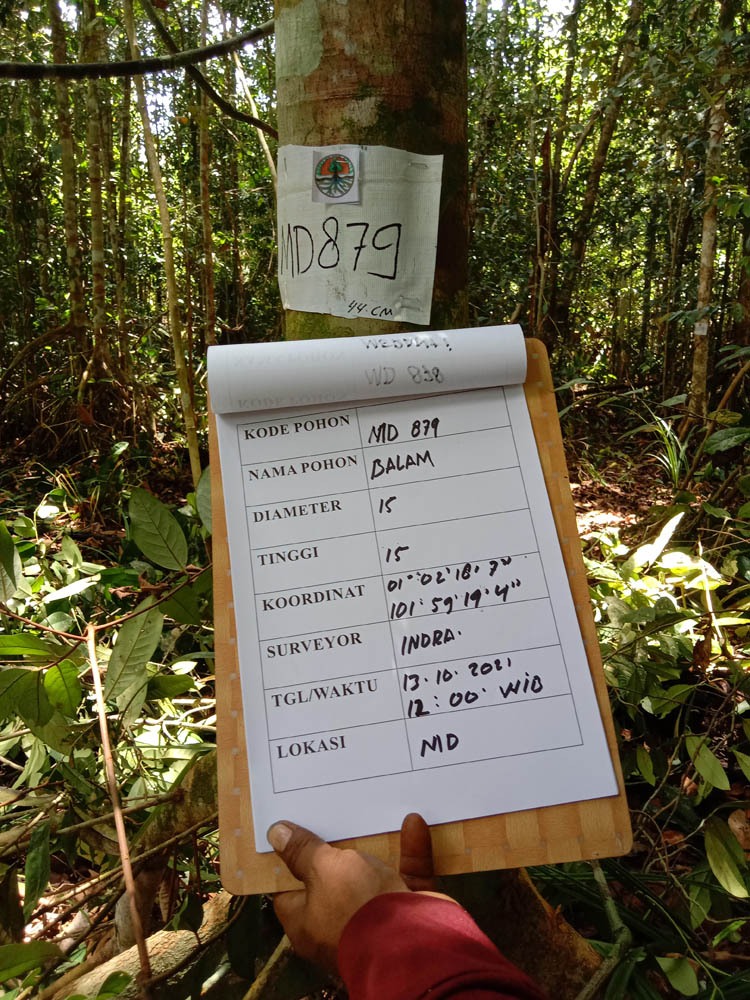 MD879
44.CM
WD 838
KODE POHON MD 879
NAMA POHON BALAM
DIAMETER 15
TINGGI 15
KOORDINAT 01°'02'18.7"
101°.59'19.4"
SURVEYOR INDRA.
TGL/WAKTU 13.10.2021
12:00. WIB
LOKASI MD